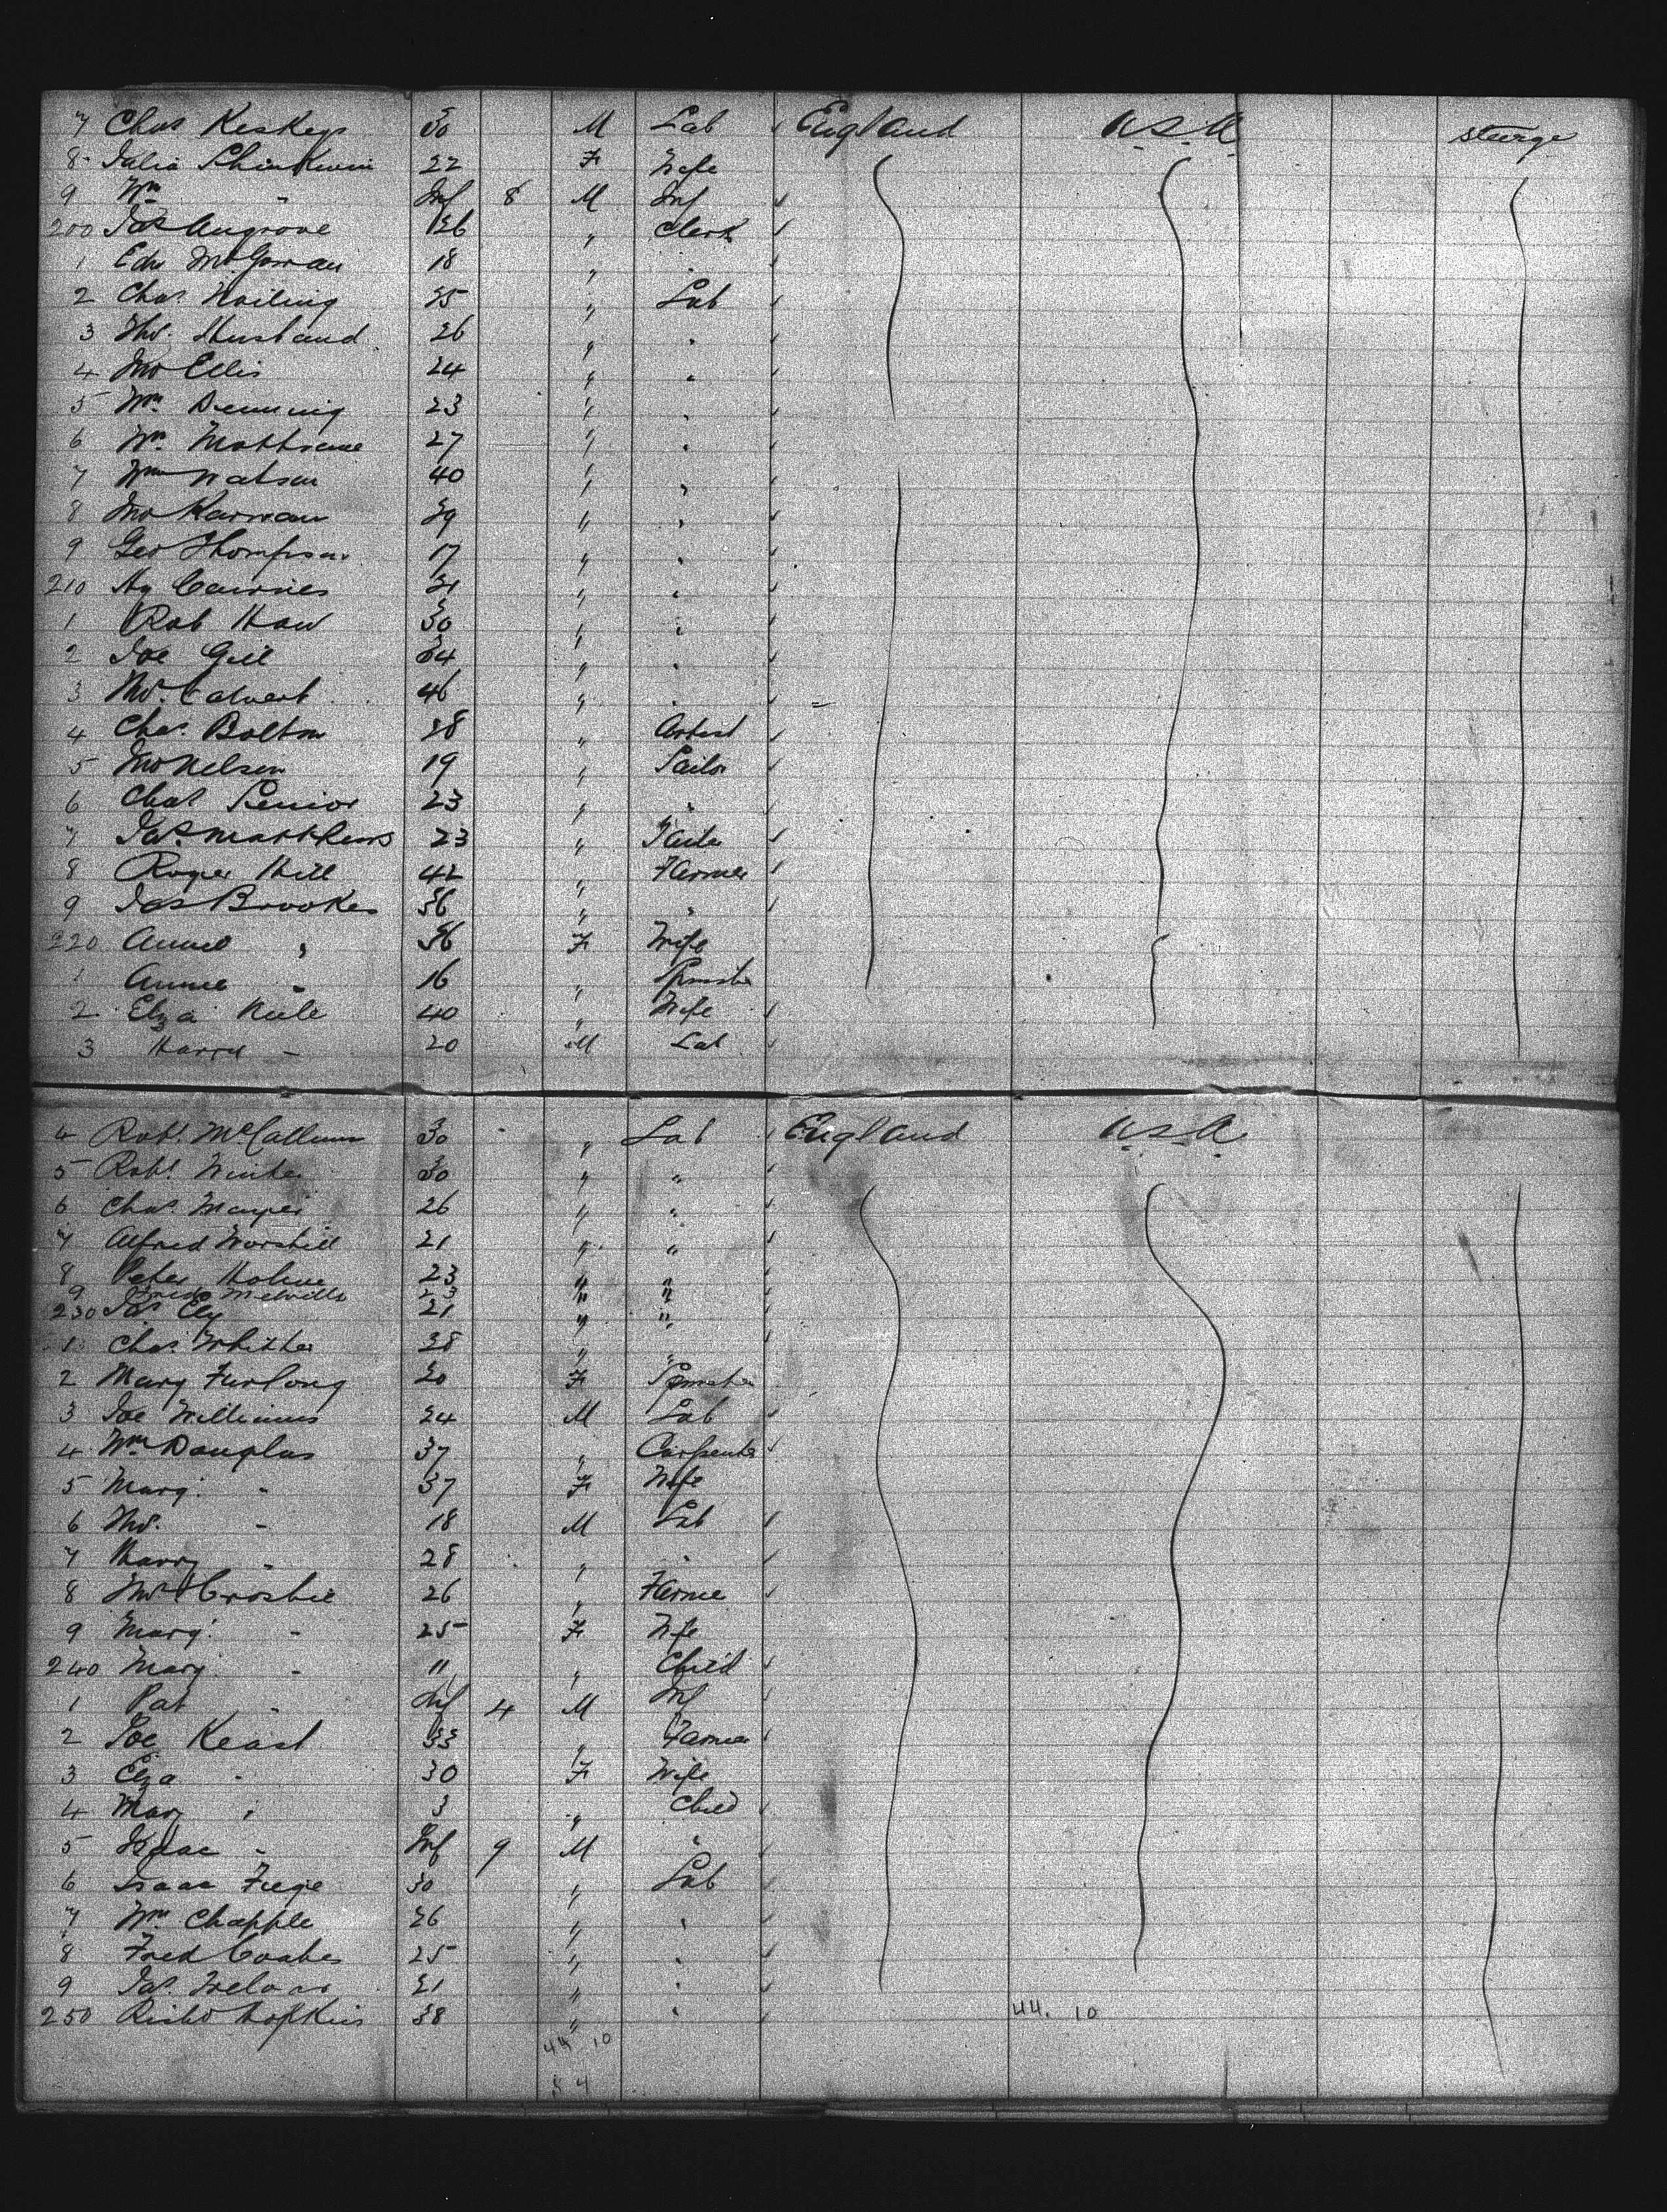 7 Chas 30 M Lab England U.S.A. steerge
8 Julia 22 F Wife
9 Wm " Inf 8 M Inf
200 Jas Angrove 26 " Clerk
1 Edw McGowan 18 " "
2 Chas. Hailing 25 " Lab
3 Tho. Husband 26 " "
4 Jno Ellis 24 " "
5 Wm Denning 23 " "
6 Wm 27 " "
7 Wm Watson 40 " "
8 Jno 29 " "
9 Geo Thompson 17 " "
210 Hy Cairnes 21 " "
1 Rob Haw 30 " "
2 Joe Gill 34 " "
3 Tho. Calvert 46 " "
4 Chas. Bolton 38 " Artist
5 Jno Nelson 19 " Sailor
6 Chas Senior 23 " "
7 Jas. Matthews 23 "
8 Roger Hill 42 " Farmer
9 Jas Brookes 56 " "
220 Annie " 56 F Wife
1 Annie " 16 " Spinster
2 Elza Keile 40 " Wife
3 Harry - 20 M Lab
4 Robt. McCallum 30 " Lab England U.S.A.
5 Robt. Winter 30 " "
6 Chas. 26 " "
7 Alfred Worshill 21 " "
8 Peter Holme 23 " "
9 Fredk Melville 23 " "
230 Jas Ely 21 " "
1 Chas. Whitter 28 " "
2 Mary Furlong 20 F Spinster
3 Joe Williams 24 M Lab
4 Wm Douglas 37 " Carpenter
5 Marg. " 37 F Wife
6 Tho. - 18 M Lab
7 Harry - 28 " "
8 Crosbie 26 " Farmer
9 Marg. - 25 F Wife
240 Mary - 11 " Child
1 Pat - Inf 4 M Inf
2 Joe Keast 33 " Farmer
3 Elza - 30 F Wife
4 Mary " 3 " Child
5 Isaac - Inf 9 M "
6 Isaac 30 " Lab
7 Wm Chapple 26 " "
8 Fred Coates 25 " "
9 Jas. 21 " "
250 Richd Hopkins 38 " " 44. 10
44 10
54